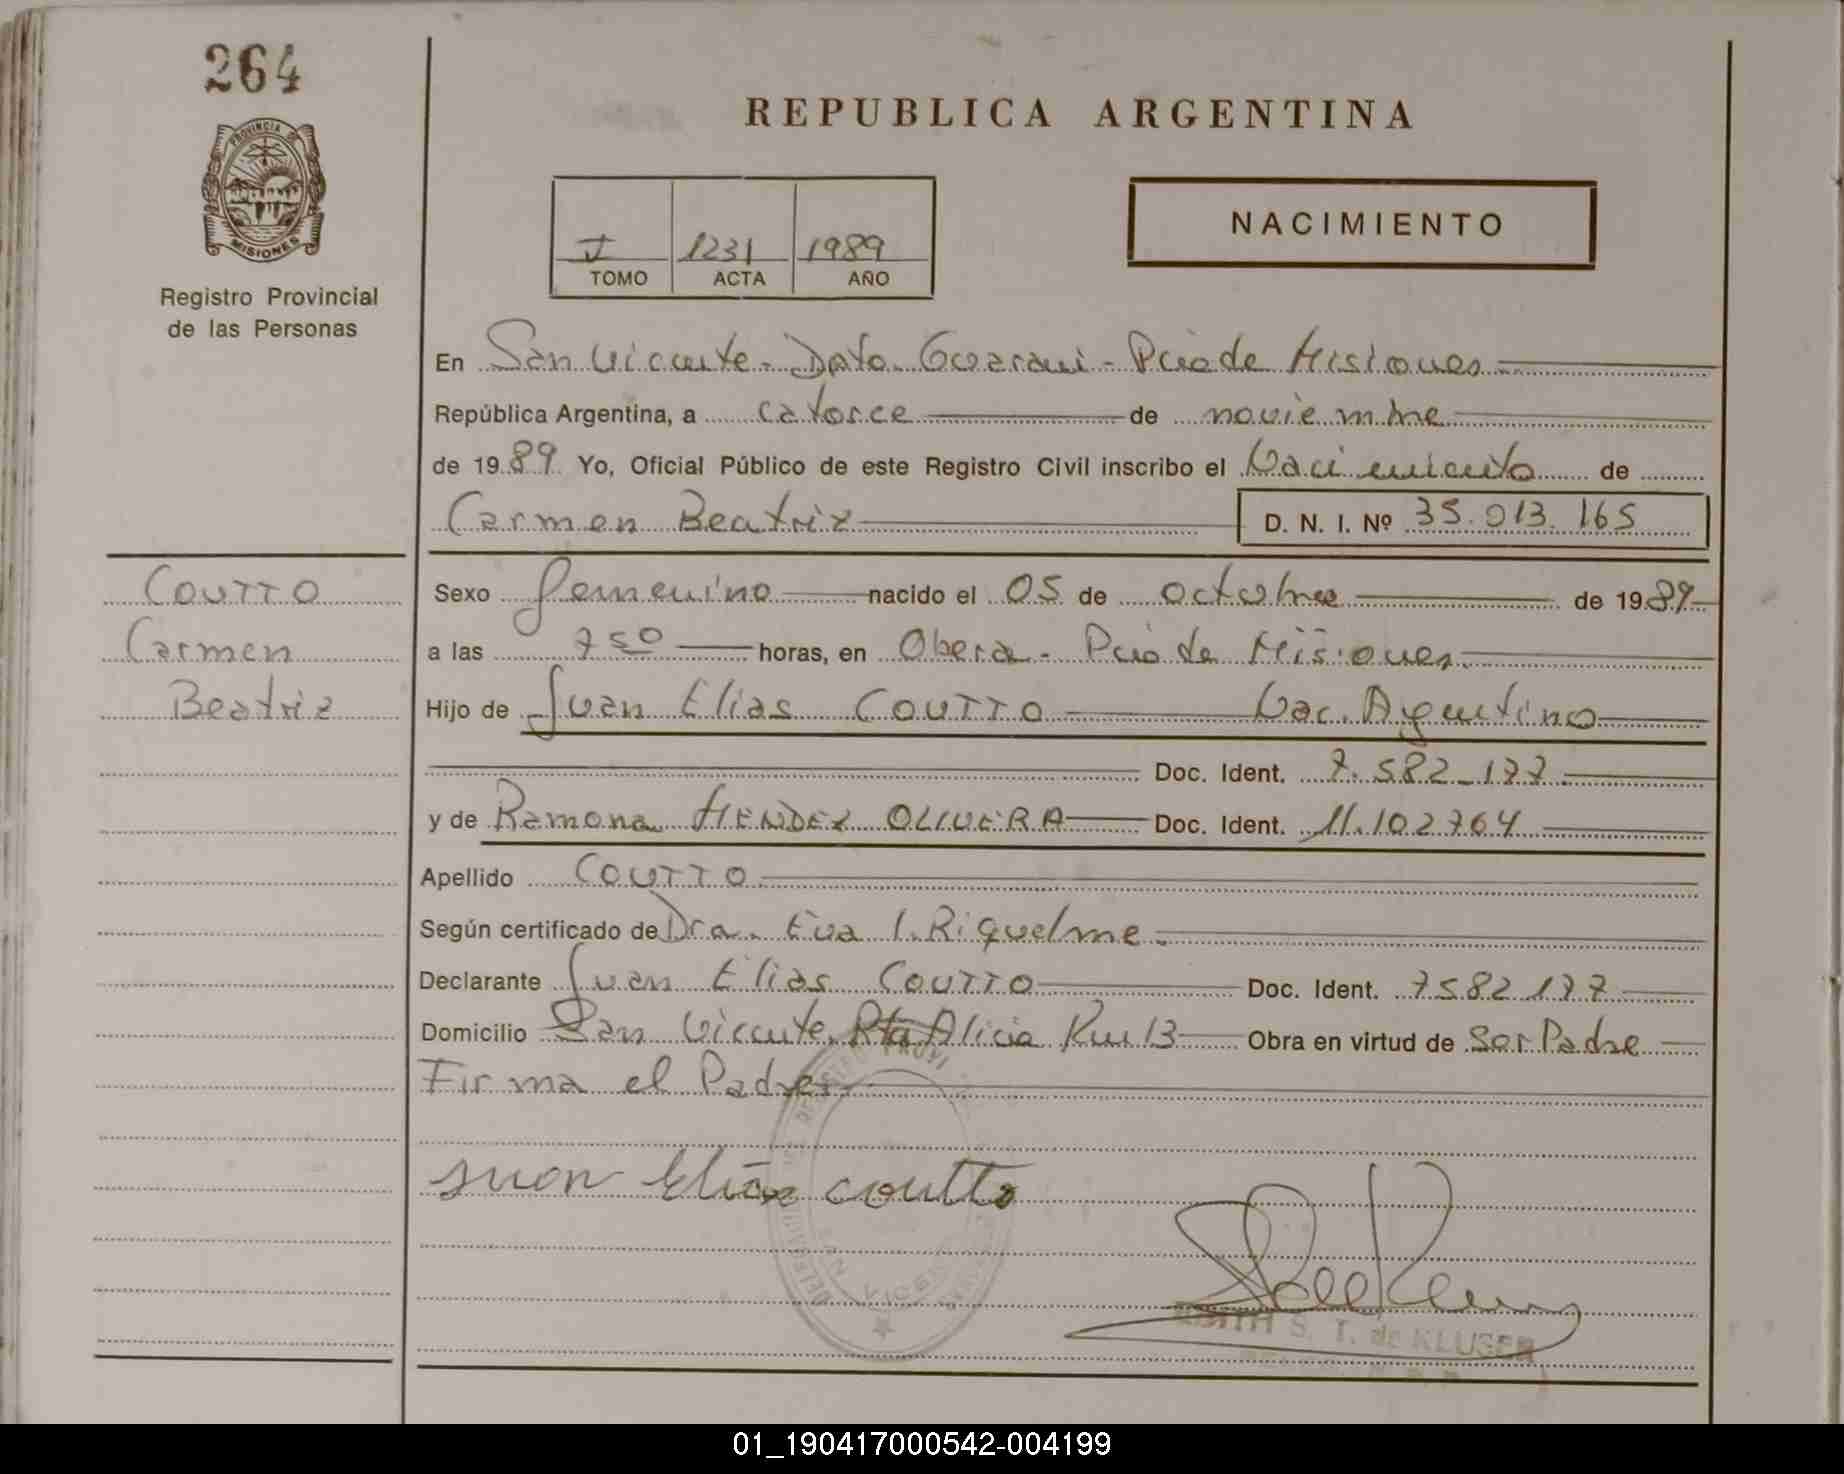 264
PROVINCIA DE
MISIONES
Registro Provincial
de las Personas
REPUBLICA ARGENTINA
NACIMIENTO
I 1231 1989
TOMO ACTA AÑO
En San Vicente - Dpto. Guarani - Pcia de Misiones
República Argentina, a catorce de noviembre
de 1989 Yo, Oficial Público de este Registro Civil inscribo el Nacimiento de
Carmen Beatriz D. N. I. Nº 35.013.165
COUTTO
Carmen
Beatriz
Sexo femenino nacido el 05 de octubre de 1989
a las 7 50 horas, en Obera - Pcia de Misiones.
Hijo de Juan Elias COUTTO Nac. Argentino
Doc. Ident. 7.582.177
y de Ramona MENDEZ OLIVERA Doc. Ident. 11.102764
Apellido COUTTO
Según certificado de Dra. Eva I. Riquelme.
Declarante Juan Elias COUTTO Doc. Ident. 7582177
Domicilio San Vicente, Alicia Obra en virtud de Ser Padre
Firma el Padre
Juan Elias coutto
S. T. de KLUSER
01_190417000542-004199